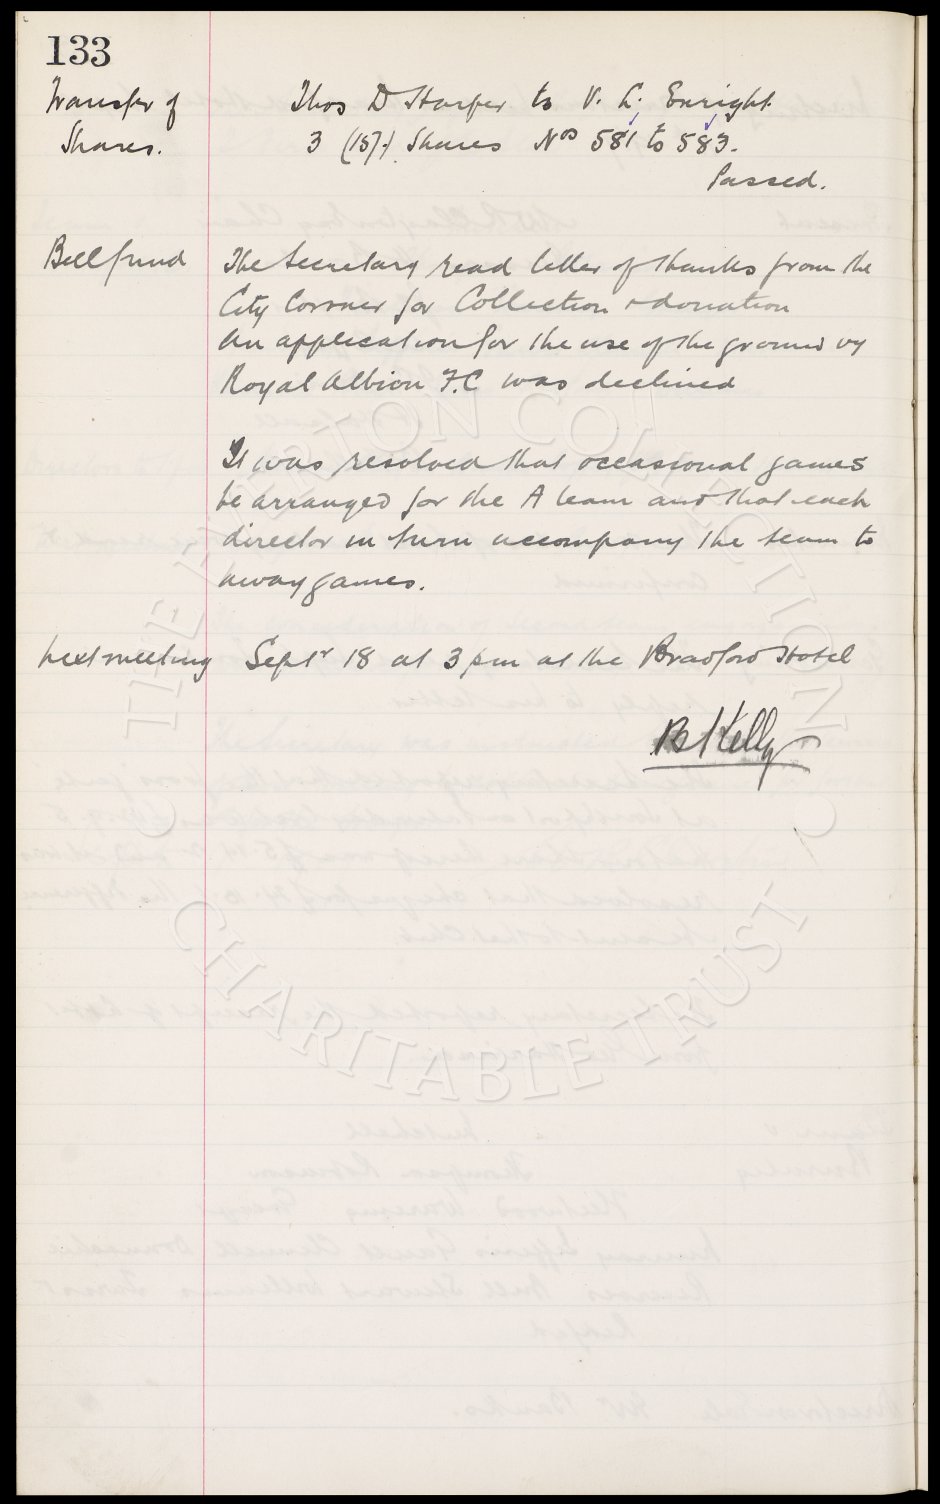 133
Transfer of Thos D Harper to V. L. Enright.
Shares. 3 (15/-) Shares Nos 581 to 583.
Passed.
Bell fund The Secretary read letter of thanks from the
City Coroner for Collection & donation
An application for the use of the ground by
Royal Albion F.C was declined
It was resolved that occasional games
be arranged for the A team and that each
director in turn accompany the team to
away games.
Next meeting Septr 18 at 3 pm at the Bradford Hotel
B Kelly
THE EVERTON COLLECTION
CHARITABLE TRUST